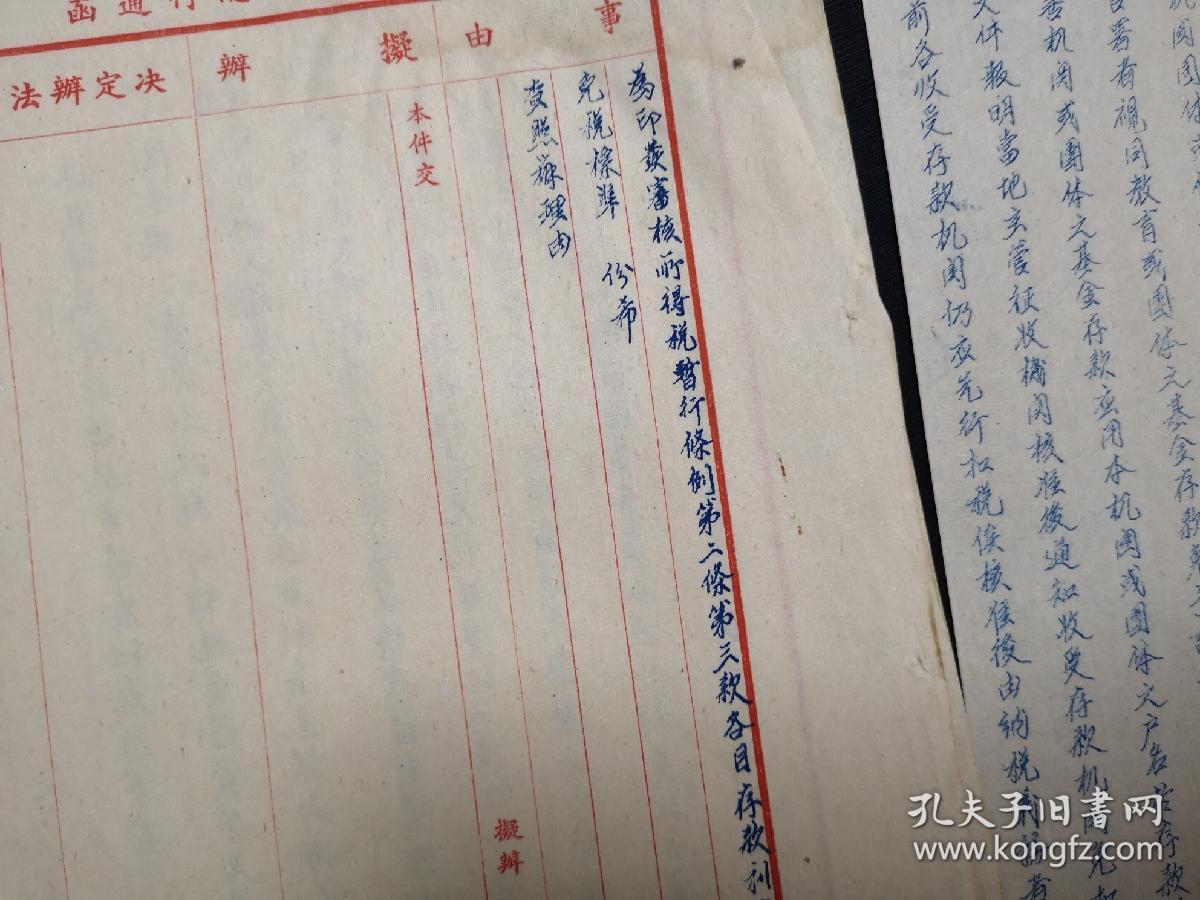 机関団体
署者視同教育或團体之基金存款
机関或團体之基金存款应用本机関或團体之户名
文件報明當地主管征收機関核准後通知收受存款机関免扣
前各收受存款机関仍应先行扣税俟核准後由納税
函通行
事由
擬辦
決定辦法
為印發審核所得税暫行條例第二條第三款各目存款利
免税標準 份希
查照辦理由
擬辦
本件交
孔夫子旧书网
www.kongfz.com